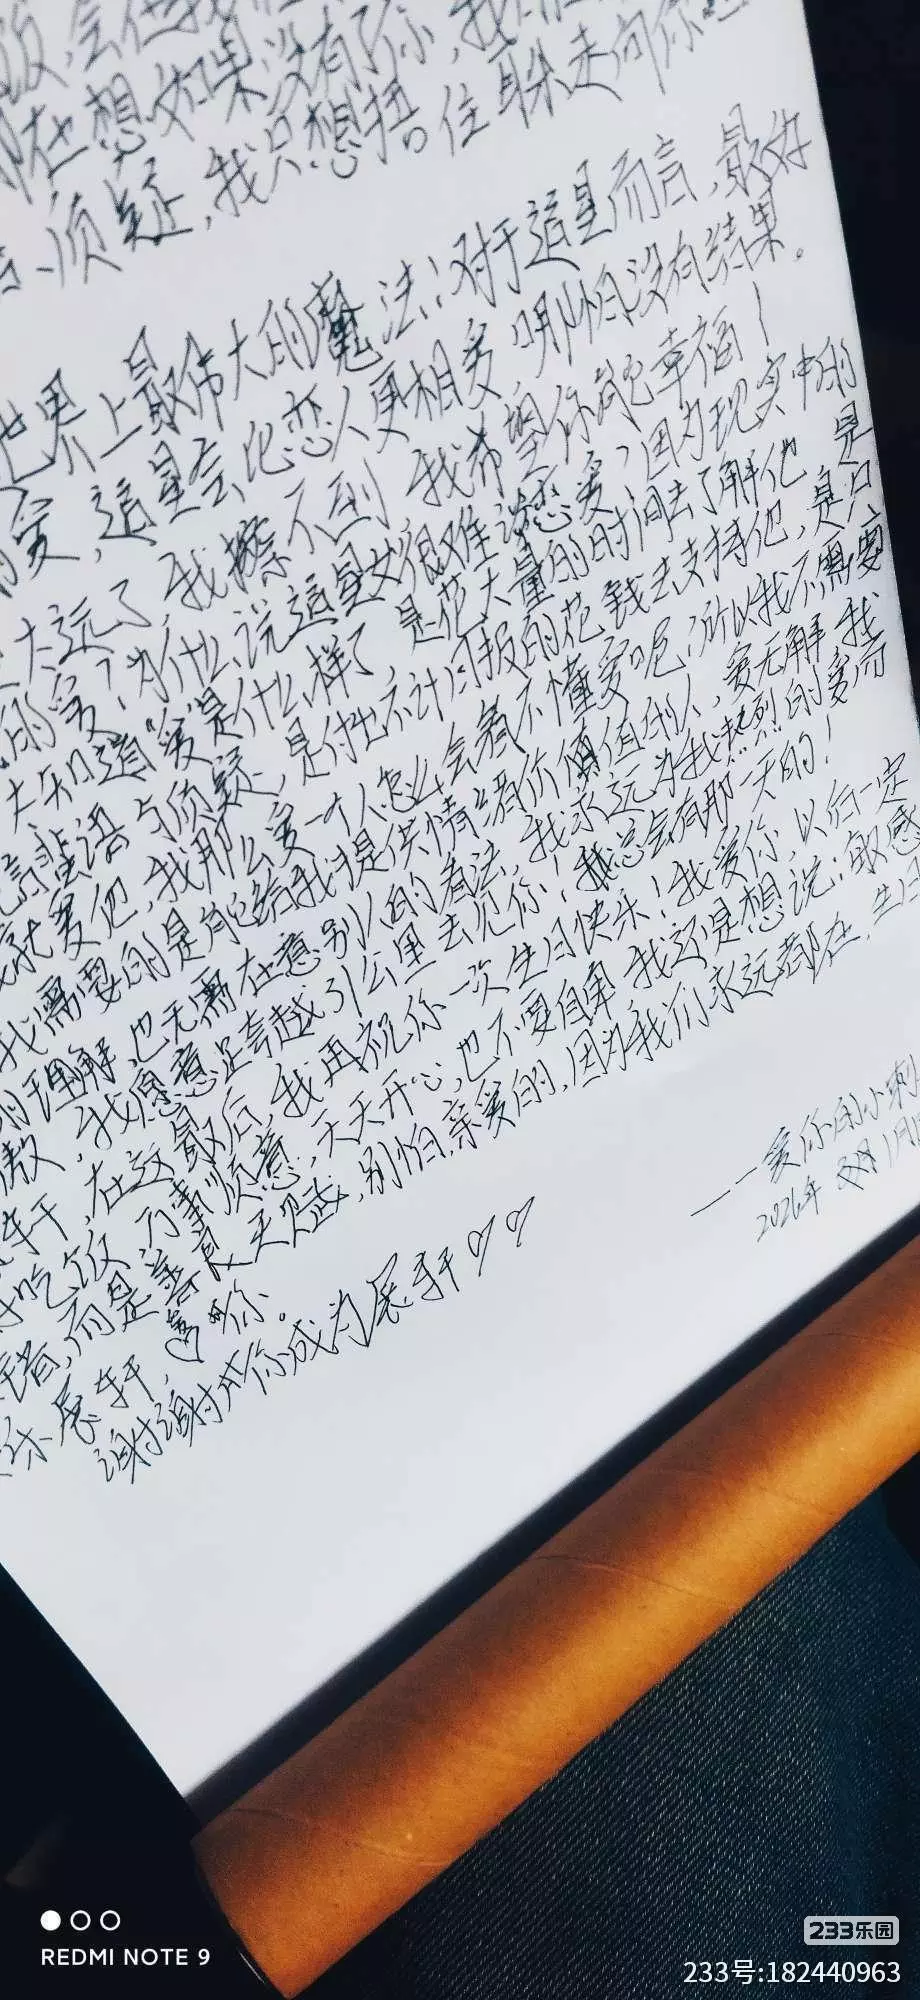 在想如果没有了你,我
、质疑,我只想捂住耳朵走向你
世界上最伟大的魔法;对于追星而言,最好
的爱,追星会比恋人更相爱,哪怕没有结果。
太远了,我擦不到,我希望你能幸福!
的爱?为什么说追星女很难谈恋爱?因为现实中的
知道“爱”是什么样了,是花大量的时间去了解他,是
言蜚语与质疑,是付出不计回报的花钱去支持他,是只
就爱他,我那么爱一个人怎么会着不懂爱呢,所以我不需要
我需要的是能给我提供情绪价值的人,爱无解,我
的理解,也无需在意别人的看法,我永远为我热烈的爱而
傲,我愿意足夸越31公里去见你!我总会有那一天的!
轩,在这最后,我再祝你一次生日快乐!我爱你,以后一定
吃饭,万事顺意,天天开心,也不要自卑,我还是想说:敏感
者,而是善良天赋,别怕,亲爱的,因为我们永远都在,生日
乐展轩,♡你。
谢谢你成为展轩♡♡
——爱你的小刺
2026年 1月1
REDMI NOTE 9
233乐园
233号:182440963